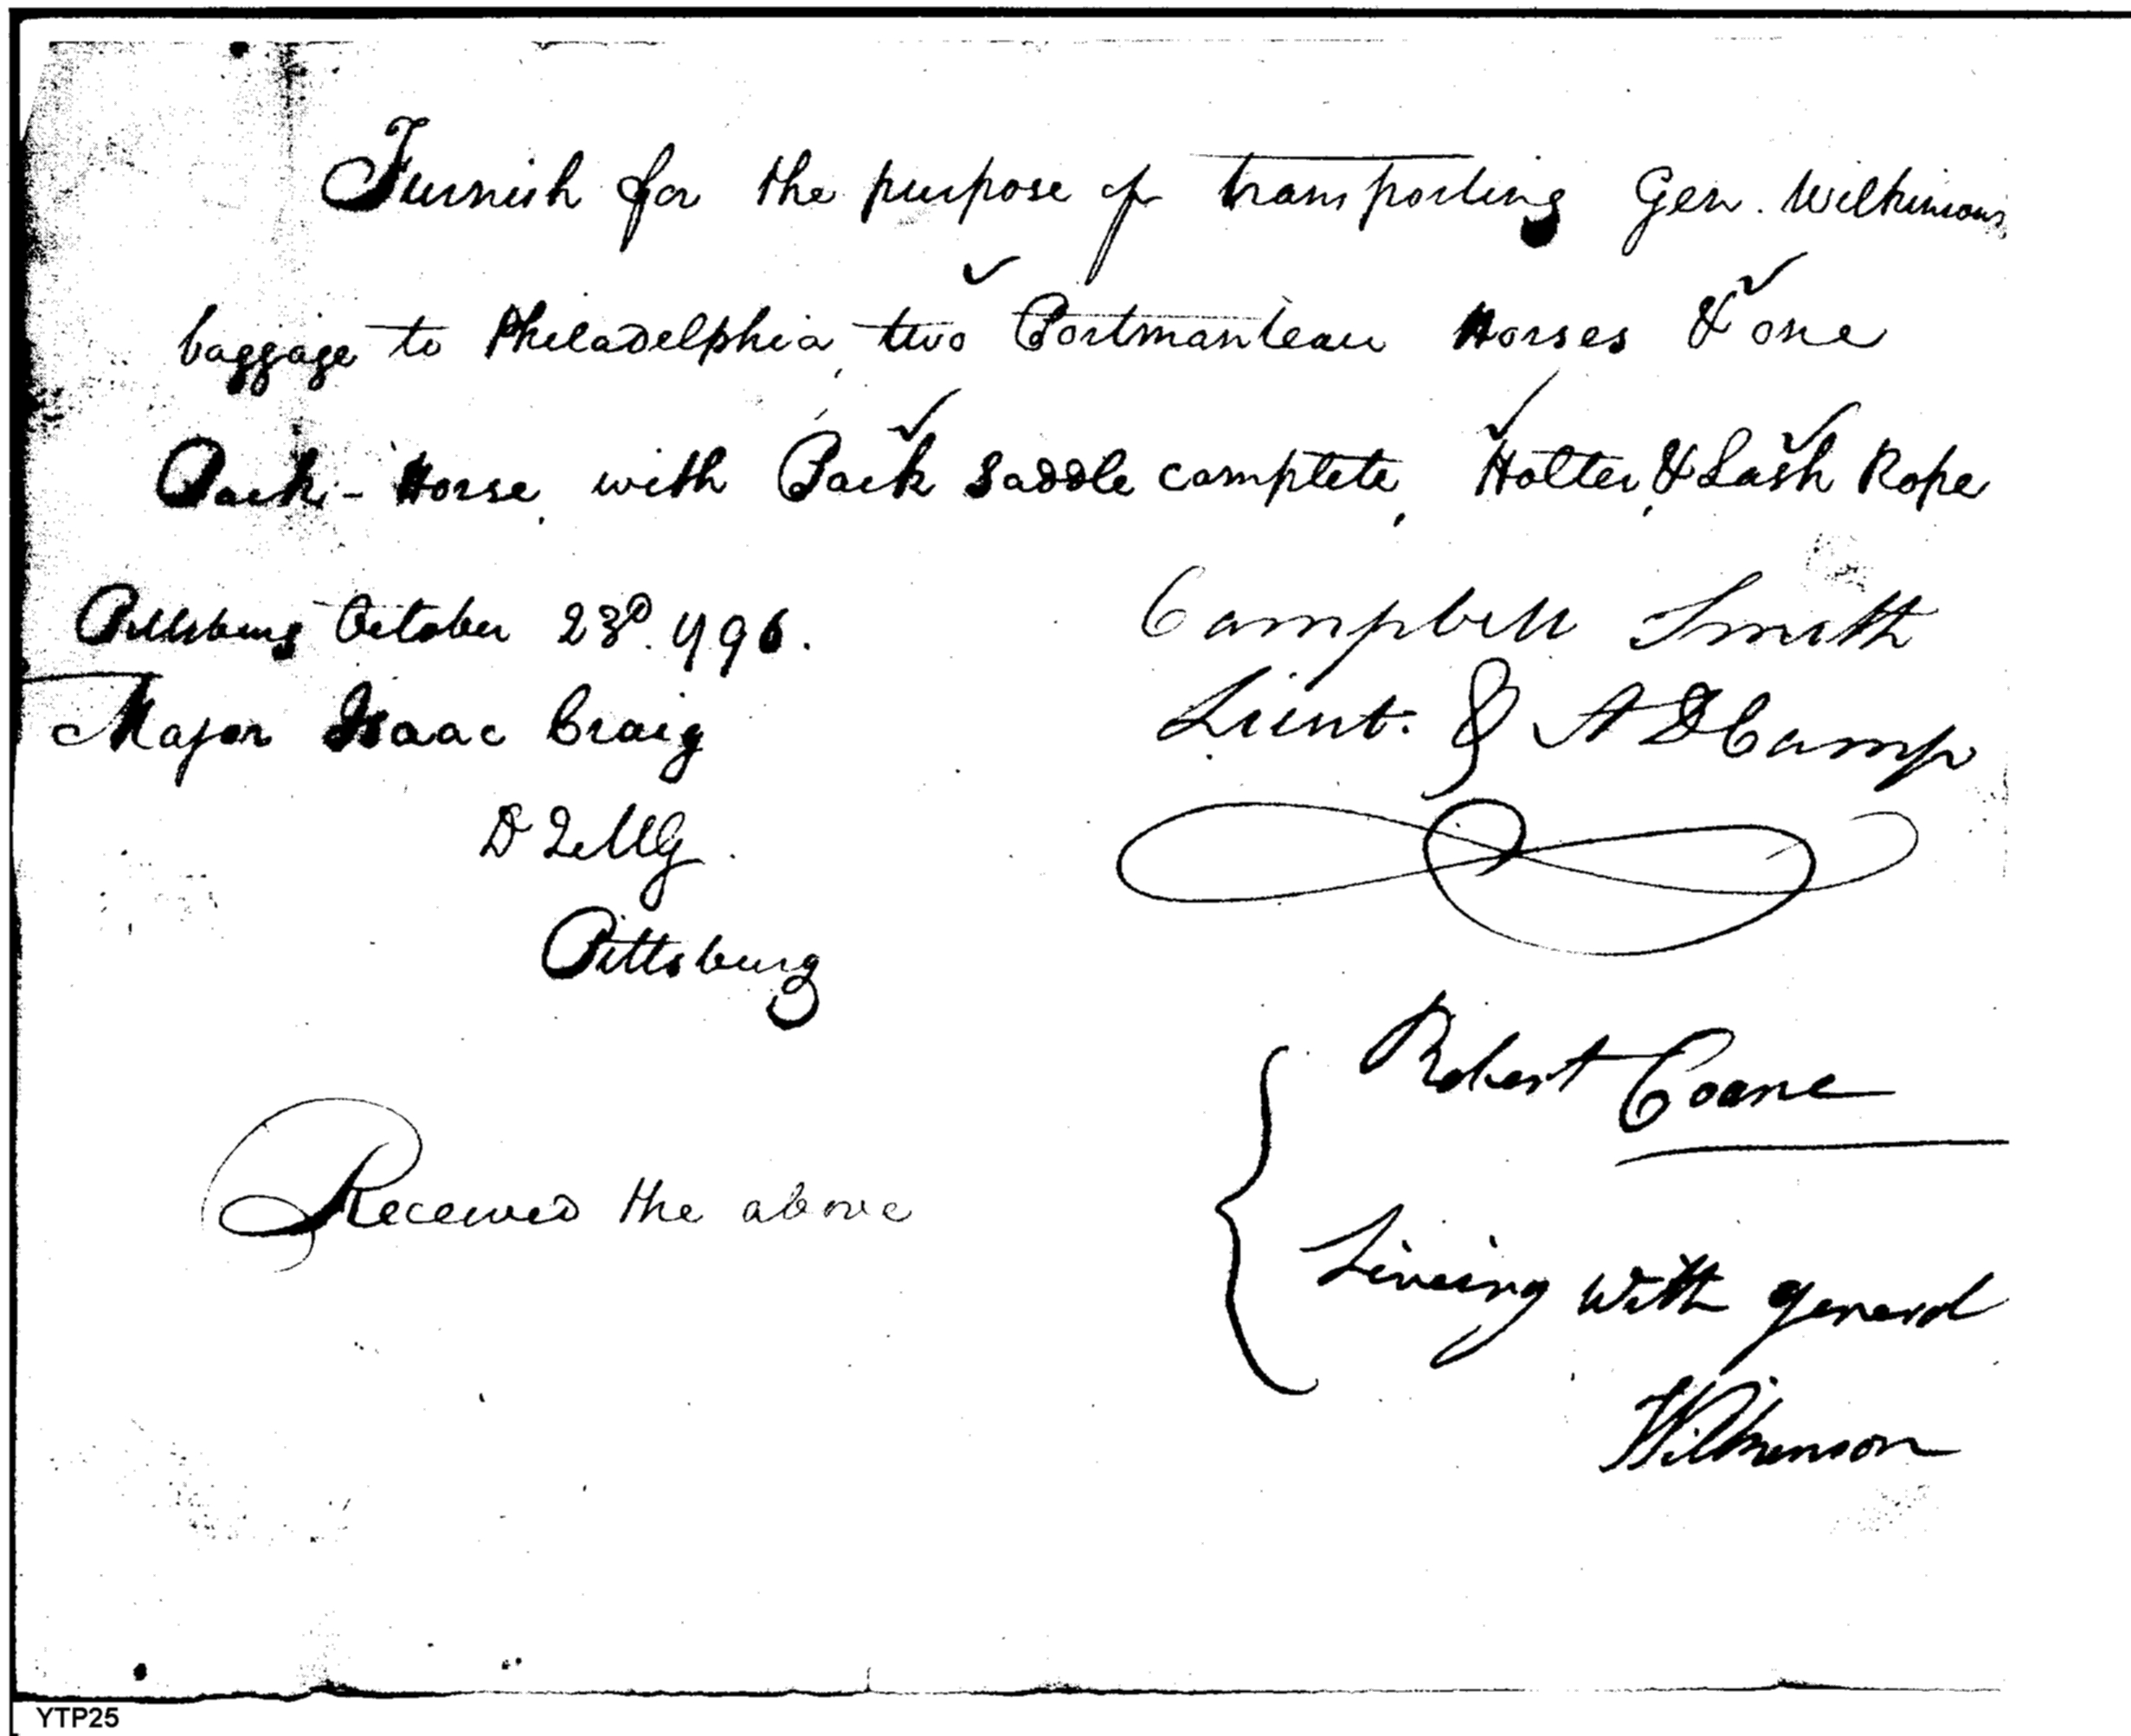 Furnish for the purpose of transporting Gen. Wilkinsons
baggage to Philadelphia, two Portmanteau Horses & one
Pack-Horse, with Pack Saddle complete, Halter, & Lash Rope
Pittsburg October 23d. 1796.
Campbell Smith
Lieut. & A D Camp
Major Isaac Craig
D Q M G
Pittsburg
Received the above
Robert Coane
Liveing with general
Wilkinson
YTP25